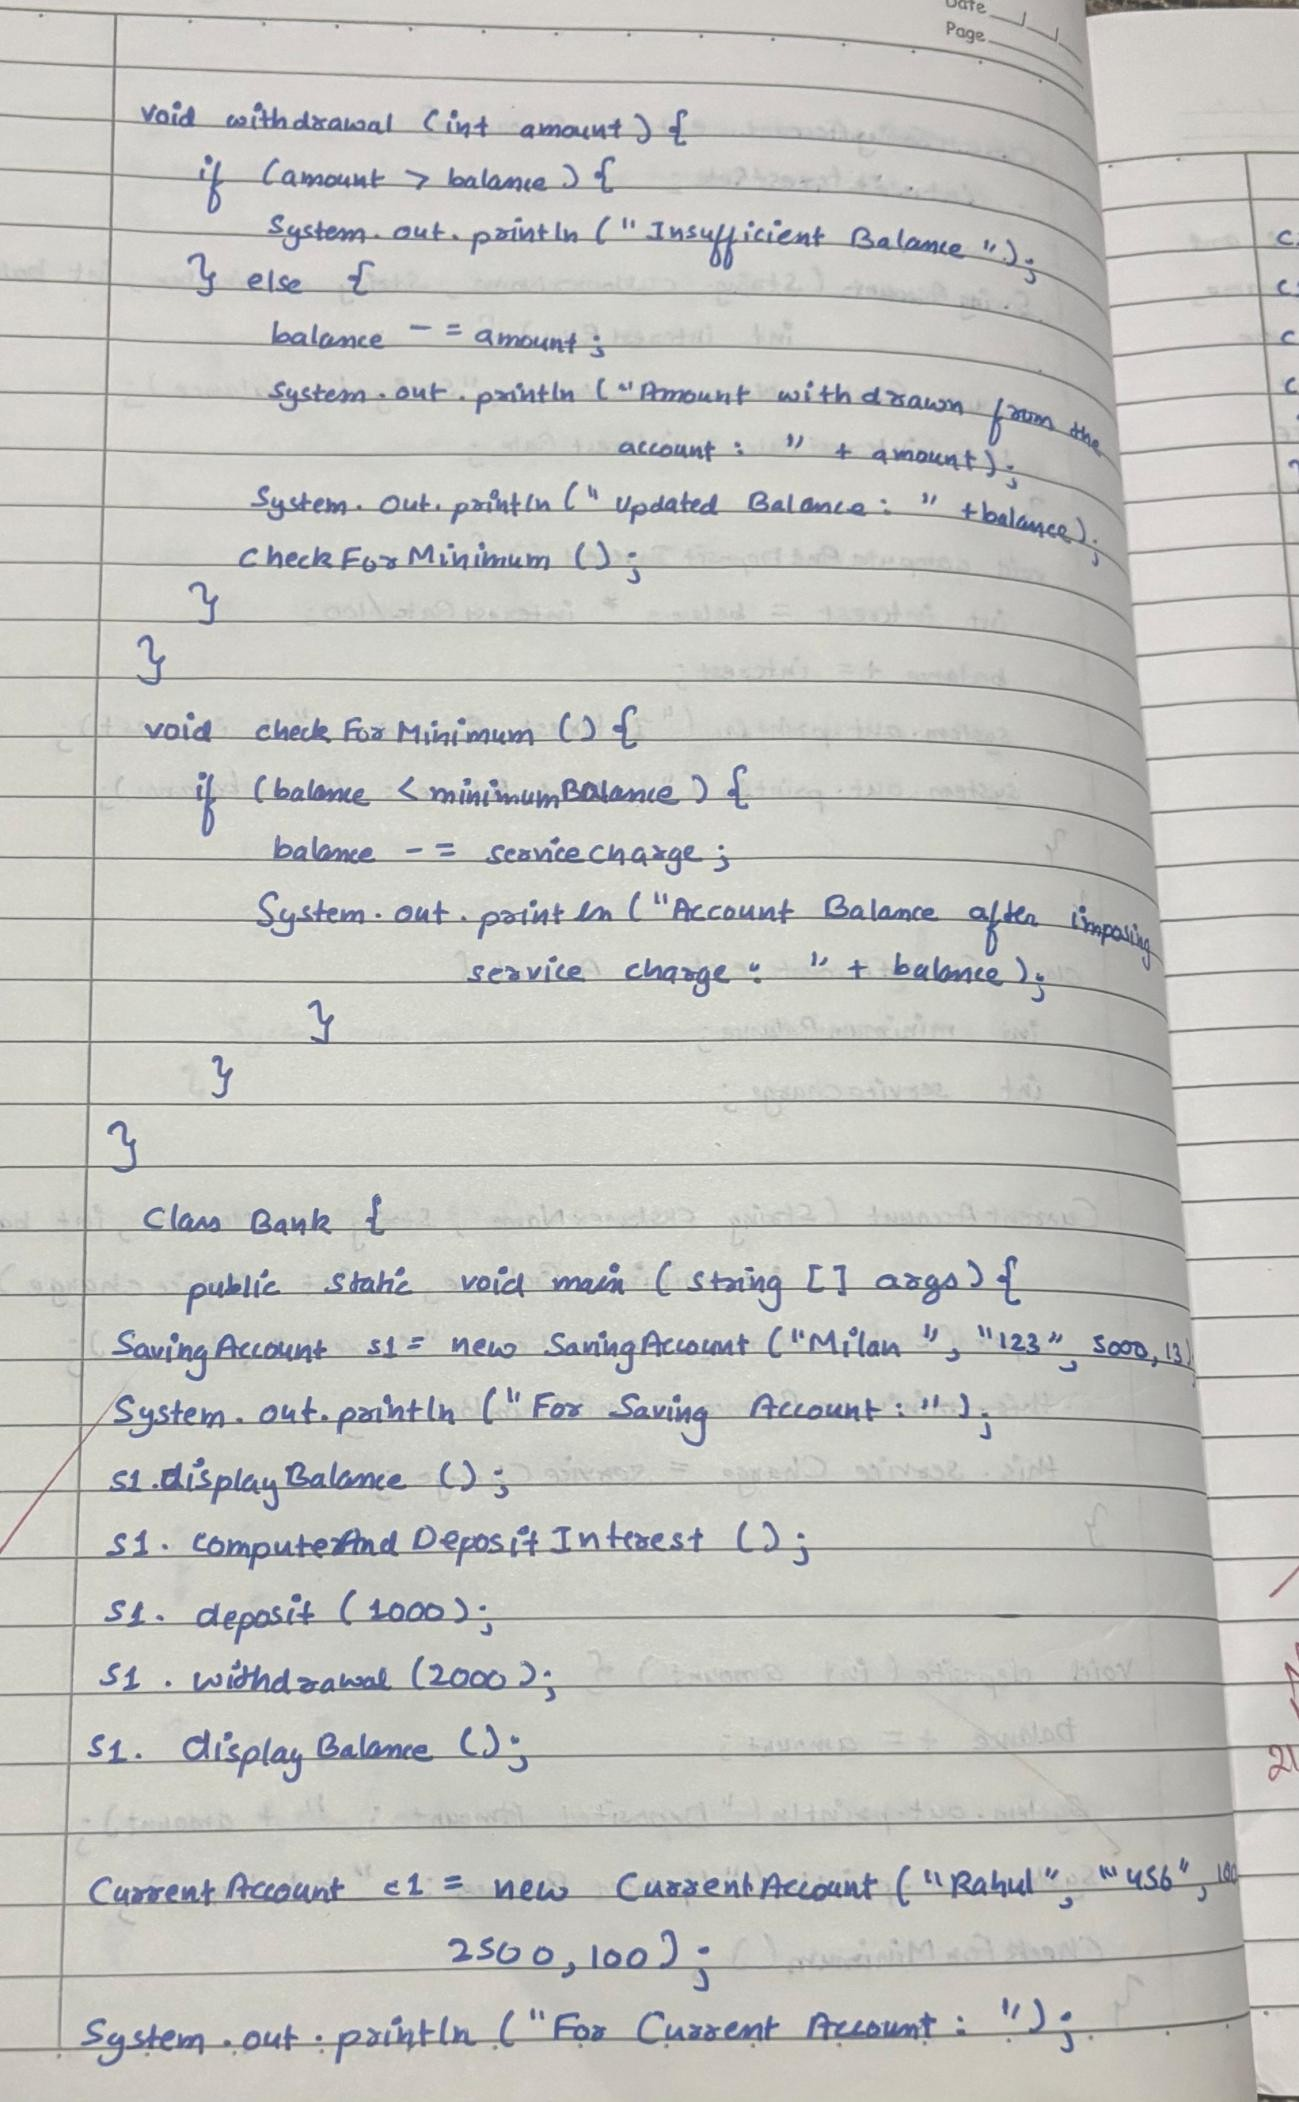 Date
Page
void withdrawal (int amount) {
if (amount > balance) {
System.out.println ("Insufficient Balance");
} else {
balance -= amount;
System.out.println ("Amount withdrawn from the
account : " + amount);
System.out.println (" Updated Balance : " +balance);
CheckForMinimum ();
}
}
void checkForMinimum () {
if (balance < minimumBalance) {
balance -= servicecharge;
System.out.println ("Account Balance after imposing
service charge : " + balance);
}
}
}
Class Bank {
public static void main (string [] args) {
SavingAccount s1 = new SavingAccount ("Milan", "123", 5000, 13)
System.out.println ("For Saving Account : ");
s1.displayBalance ();
s1. computeAndDepositInterest ();
s1. deposit (1000);
s1. withdrawal (2000);
s1. displayBalance ();
CurrentAccount c1 = new CurrentAccount ("Rahul", "456",
2500, 100);
System.out.println ("For Current Account : ");